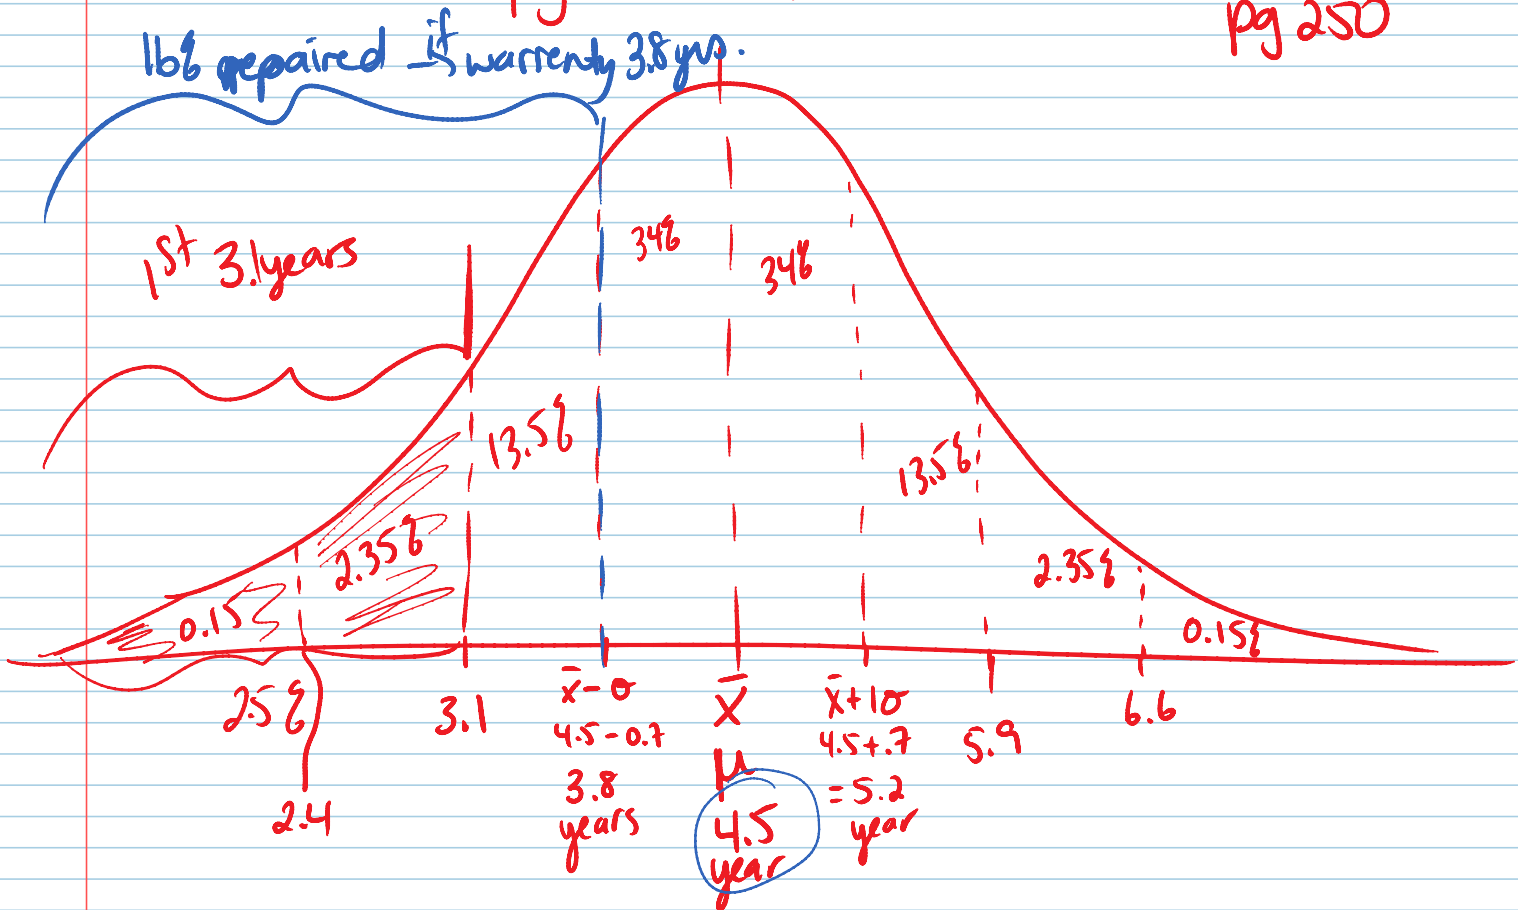 pg 250
16% repaired if warrenty 3.8 yrs.
1st 3.1 years
34%
34%
13.5%
13.5%
2.35%
2.35%
0.15
0.15%
2.5%
2.4
3.1
x̄ - σ
4.5 - 0.7
3.8
years
x̄
μ
4.5
year
x̄ + 1σ
4.5 + .7
= 5.2
year
5.9
6.6